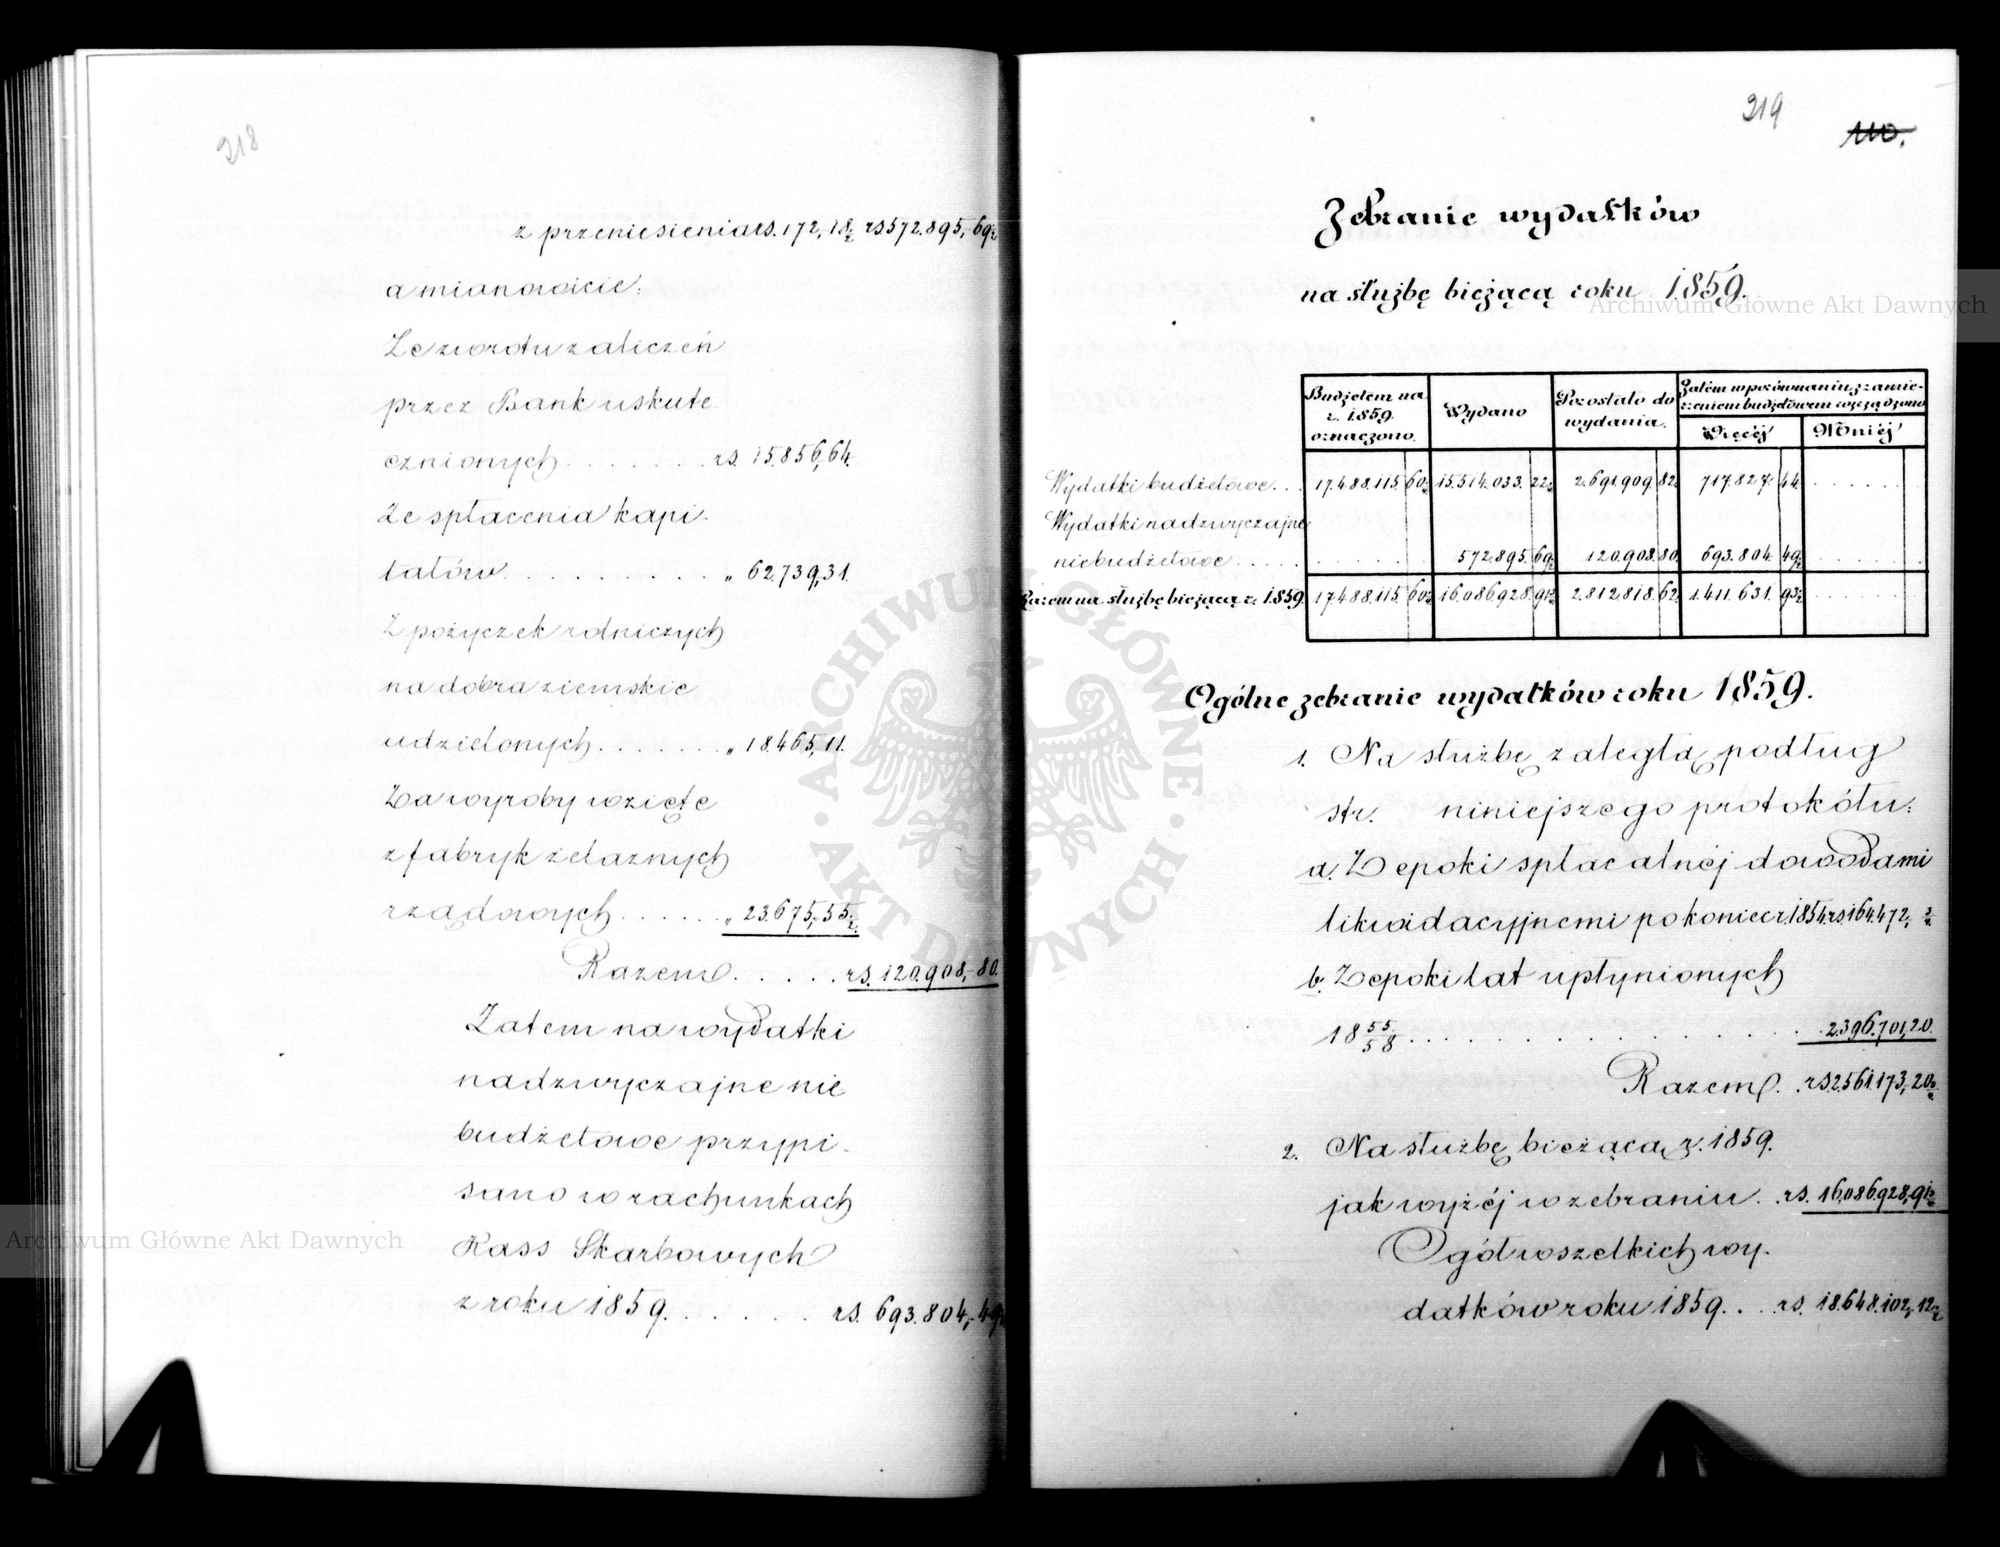 218
z przeniesienia rs. 172,18½ rs 572.895,69½
a mianowicie:
Ze zwrotu zaliczeń
przez Bank uskute
cznionych . . . . . . . rs. 15.856,64.
Ze spłacenia kapi-
tałów . . . . . . . . . . „ 62.739,31.
Z pożyczek rolniczych
na dobra ziemskie
udzielonych . . . . . . . „ 18.465,11.
Za wyroby wzięte
z fabryk żelaznych
rządowych . . . . . . „ 23.675,55½.
Razem . . . . . rs. 120.908,80.
Zatem na wydatki
nadzwyczajne nie
budżetowe przypi-
sano w rachunkach
Kass Skarbowych
z roku 1859 . . . . . . rs. 693.804,49½
219
110.
Zebranie wydatków
na służbę bieżącą roku 1859.
Budżetem na r. 1859. oznaczono.
Wydano
Pozostało do wydania.
Zatém w porównaniu z zamie-
rzeniem budżetowem rozrządzono
Więcéj
Mniéj
Wydatki budżetowe . . . 17.488.115. 60½ 15.514.033. 22½ 2.691.909. 82. 717.827. 44. . . . . . .
Wydatki nadzwyczajne
niebudżetowe . . . . . . . . . . . 572.895. 69½ 120.908. 80. 693.804. 49½ . . . . . .
Razem na służbę bieżącą r. 1859. 17.488.115. 60½ 16.086.928. 91½ 2.812.818. 62. 1.411.631. 93½ . . . . . .
Ogólne zebranie wydatków roku 1859.
1. Na służbę zaległą podług
str. niniejszego protokółu:
a. Z epoki spłacalnéj dowodami
likwidacyjnemi po koniec r. 1854 rs 164.472,
b. Z epoki lat upłynionych
18 55/58 . . . . . . . . . . . . 2.396.701,20.
Razem . . rs. 2.561.173,20½
2. Na służbę bieżącą r. 1859.
jak wyżéj w zebraniu . rs. 16.086.928,91½
Ogół wszelkich wy-
datków roku 1859 . . rs. 18.648.102,12½
Archiwum Główne Akt Dawnych
Archiwum Główne Akt Dawnych
ARCHIWUM GŁÓWNE • AKT DAWNYCH •